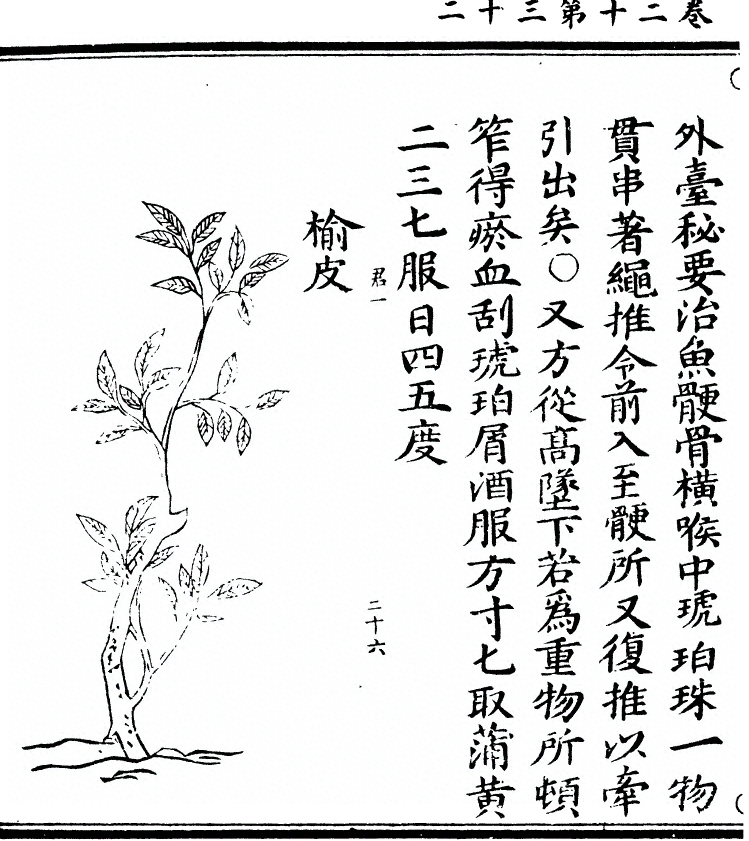 卷二十第三十二
外臺秘要治魚骾骨橫喉中琥珀珠一物
貫串著繩推令前入至骾所又復推以牽
引出矣○又方從髙墜下若爲重物所頓
笮得瘀血刮琥珀屑酒服方寸七取蒲黄
二三七服日四五度
君一
二十六
榆皮